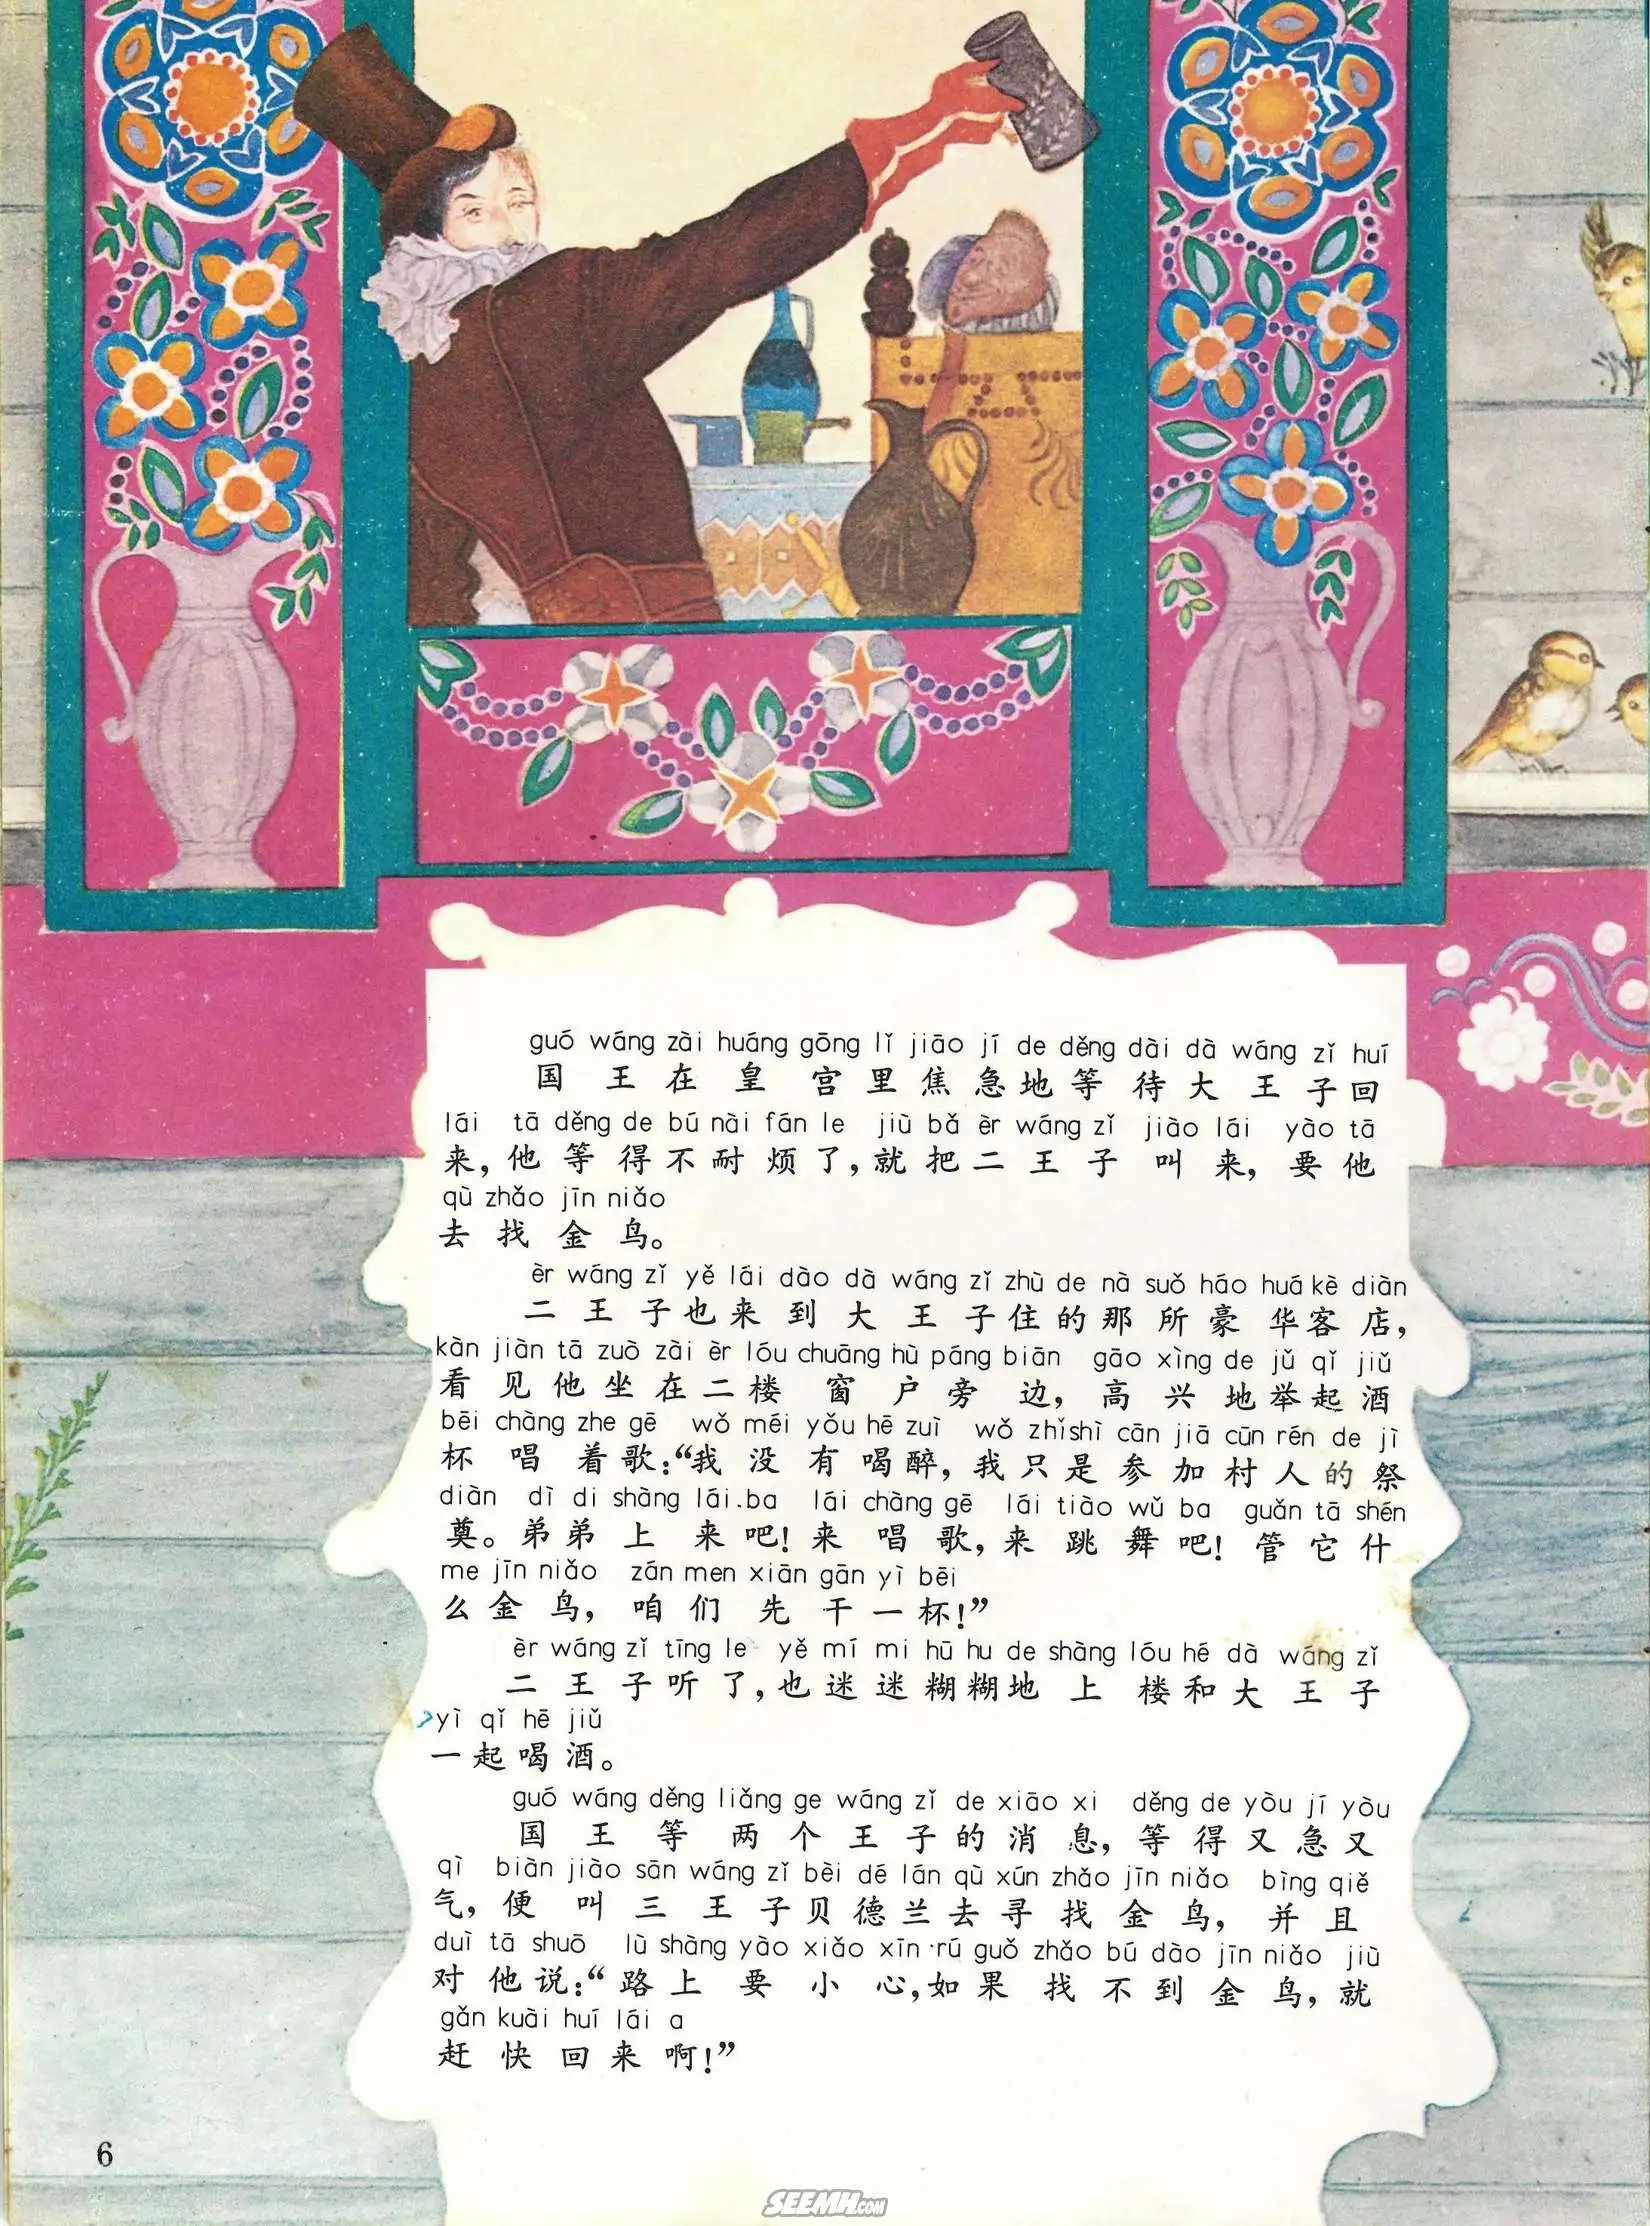 guó wáng zài huáng gōng lǐ jiāo jí de děng dài dà wáng zǐ huí
国王在皇宫里焦急地等待大王子回
lái tā děng de bú nài fán le jiù bǎ èr wáng zǐ jiào lái yào tā
来，他等得不耐烦了，就把二王子叫来，要他
qù zhǎo jīn niǎo
去找金鸟。
èr wáng zǐ yě lái dào dà wáng zǐ zhù de nà suǒ háo huá kè diàn
二王子也来到大王子住的那所豪华客店，
kàn jiàn tā zuò zài èr lóu chuāng hù páng biān gāo xìng de jǔ qǐ jiǔ
看见他坐在二楼窗户旁边，高兴地举起酒
bēi chàng zhe gē wǒ méi yǒu hē zuì wǒ zhǐ shì cān jiā cūn rén de jì
杯唱着歌：“我没有喝醉，我只是参加村人的祭
diàn dì di shàng lái ba lái chàng gē lái tiào wǔ ba guǎn tā shén
奠。弟弟上来吧！来唱歌，来跳舞吧！管它什
me jīn niǎo zán men xiān gān yì bēi
么金鸟，咱们先干一杯！”
èr wáng zǐ tīng le yě mí mi hū hu de shàng lóu hé dà wáng zǐ
二王子听了，也迷迷糊糊地上楼和大王子
yì qǐ hē jiǔ
一起喝酒。
guó wáng děng liǎng ge wáng zǐ de xiāo xi děng de yòu jí yòu
国王等两个王子的消息，等得又急又
qì biàn jiào sān wáng zǐ bèi dé lán qù xún zhǎo jīn niǎo bìng qiě
气，便叫三王子贝德兰去寻找金鸟，并且
duì tā shuō lù shàng yào xiǎo xīn rú guǒ zhǎo bú dào jīn niǎo jiù
对他说：“路上要小心，如果找不到金鸟，就
gǎn kuài huí lái a
赶快回来啊！”
6
SEEMH.COM